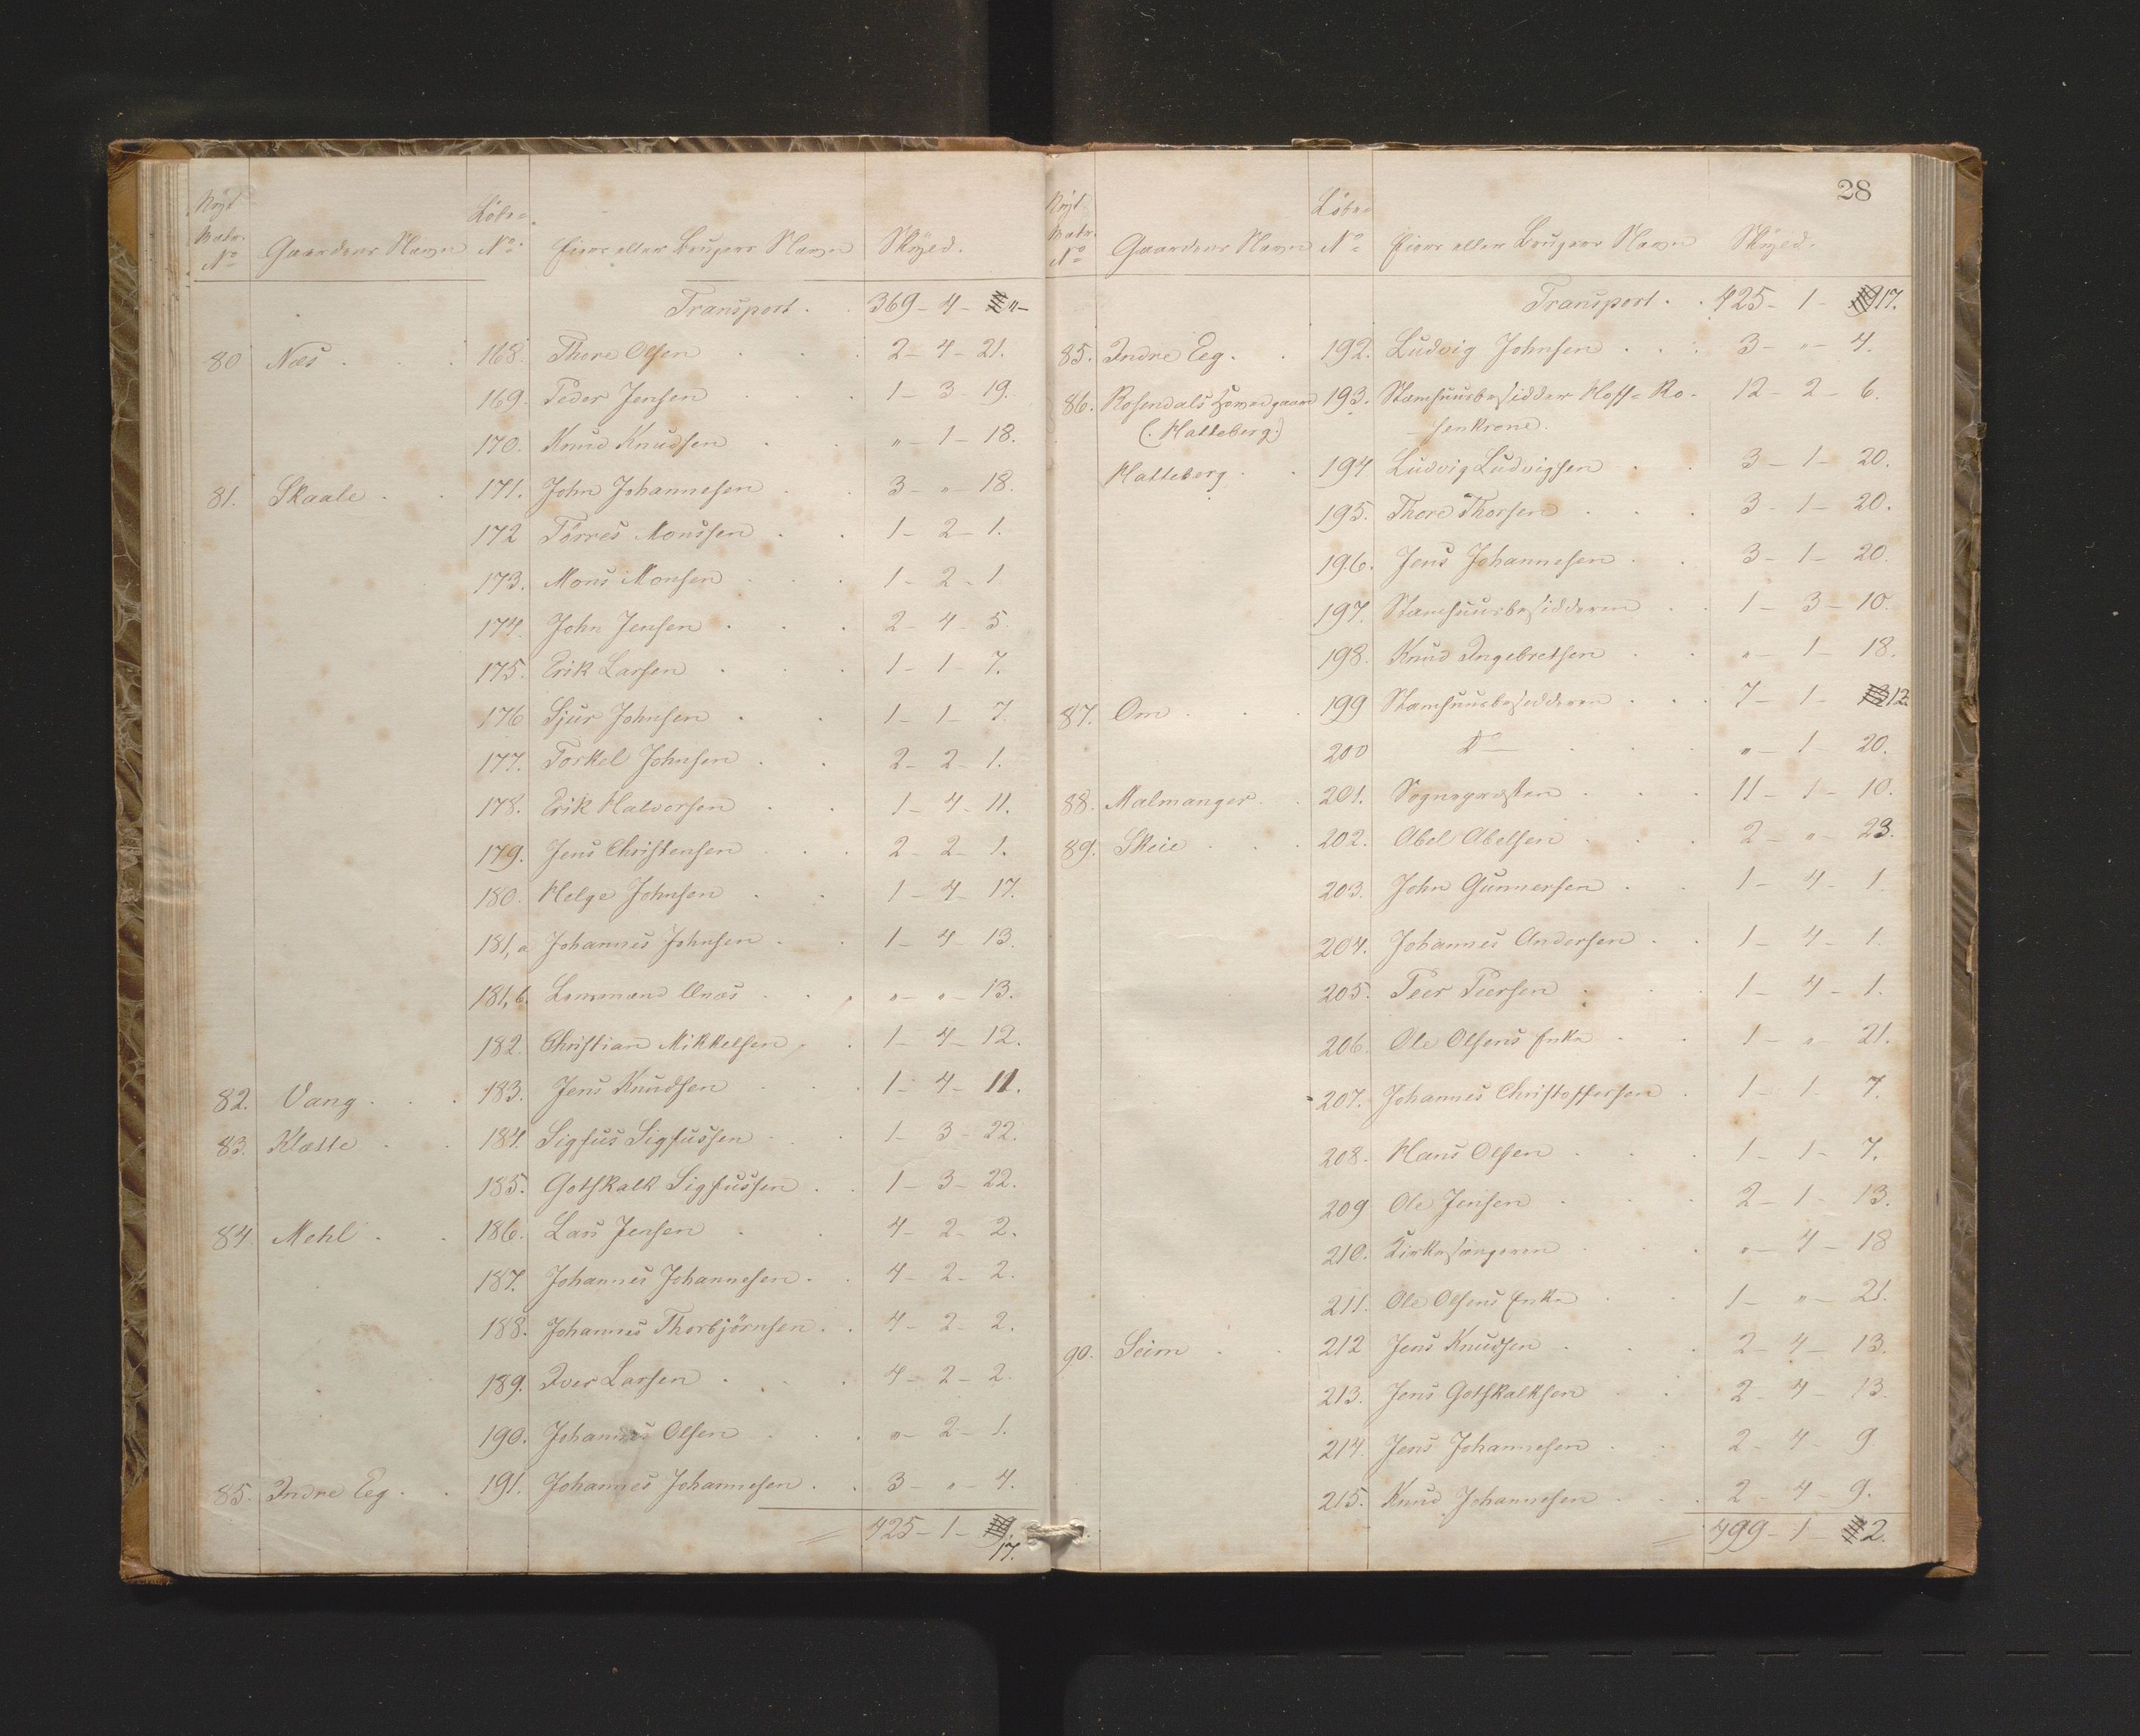 Nyt Matr. No Gaardens Navn Löbe No. Eiers eller Brugers Navn Skyld.
Transport . . 369 - 4 - " -
80 Næs . . . 168. Thore Olsen . . . 2 - 4 - 21.
169. Peder Jensen . . . 1 - 3 - 19.
170. Knud Knudsen . . " - 1 - 18.
81. Skaale . . 171. John Johannesen . . 3 - " - 18.
172 Törres Monssen . . 1 - 2 - 1.
173. Mons Monsen . . . 1 - 2 - 1
174. John Jensen . . . 2 - 4 - 5.
175. Erik Larsen . . . 1 - 1 - 7.
176 Sjur Johnsen . . 1 - 1 - 7.
177. Torkel Johnsen . . 2 - 2 - 1.
178. Erik Halvorsen . . 1 - 4 - 11.
179. Jens Christensen . . . 2 - 2 - 1.
180. Helge Johnsen . . 1 - 4 - 17.
181, a Johannes Johnsen . . 1 - 4 - 13.
181, b. Lensmand Næs . . . " - " - 13.
182. Christian Mikkelsen . . 1 - 4 - 12.
82. Vang . . . 183. Jens Knudsen . . . 1 - 4 - 11.
83. Klætte . . 184. Sigfus Sigfussen . . . 1 - 3 - 22.
185. Gothkalk Sigfussen . . 1 - 3 - 22.
84. Mehl . . 186. Lars Jensen . . 4 - 2 - 2.
187. Johannes Johannesen . . 4 - 2 - 2.
188. Johannes Thorbjörnsen . . 4 - 2 - 2.
189. Iver Larsen . . . 4 - 2 - 2.
190. Johannes Olsen . . . " - 2 - 1.
85. Indre Eeg . . 191. Johannes Johannesen . . 3 - " - 4.
425 - 1 -
17.
28
Nyt Matr. No Gaardens Navn Löbe No Eiers eller Brugers Navn Skyld.
Transport . . 425 - 1 - 17.
85. Indre Eeg . . 192. Ludvig Johnsen . . . 3 - " - 4.
86. Rosendals Hovedgaard 193. Stamhuusbesidder Hoff-Ro- 12 - 2 - 6.
(: Hatteberg :) senkrone.
Hatteberg . . 194 Ludvig Ludvigsen . . 3 - 1 - 20.
195. Thore Thorsen . . . 3 - 1 - 20.
196. Jens Johannesen . . 3 - 1 - 20.
197. Stamhuusbesidderen . . 1 - 3 - 10.
198. Knud Ingebretsen . . " - 1 - 18.
87. Om . . . 199 Stamhuusbesidderen . . . 7 - 1 - 12.
200 Do . . . " - 1 - 20.
88. Malmanger . . 201. Sognepræsten . . . 11 - 1 - 10.
89. Skeie . . . 202. Abel Abelsen . . . 2 - " - 23.
203. John Gunnersen . . 1 - 4 - 1.
204. Johannes Andersen . . 1 - 4 - 1.
205. Peer Peersen . . . 1 - 4 - 1.
206. Ole Olsens Enke . . 1 - " - 21.
207. Johannes Christoffersen . 1 - 1 - 7.
208. Hans Olsen . . . 1 - 1 - 7.
209 Ole Jensen . . . 2 - 1 - 13.
210. Kirkesangeren . . . " - 4 - 18
211. Ole Olsens Enke . . 1 - " - 21.
90. Seim . . 212 Jens Knudsen . . . 2 - 4 - 13.
213. Jens Gothkalksen . . 2 - 4 - 13
214. Jens Johannesen . . 2 - 4 - 9
215. Knud Johannesen . . . 2 - 4 - 9.
499 - 1 - 2.